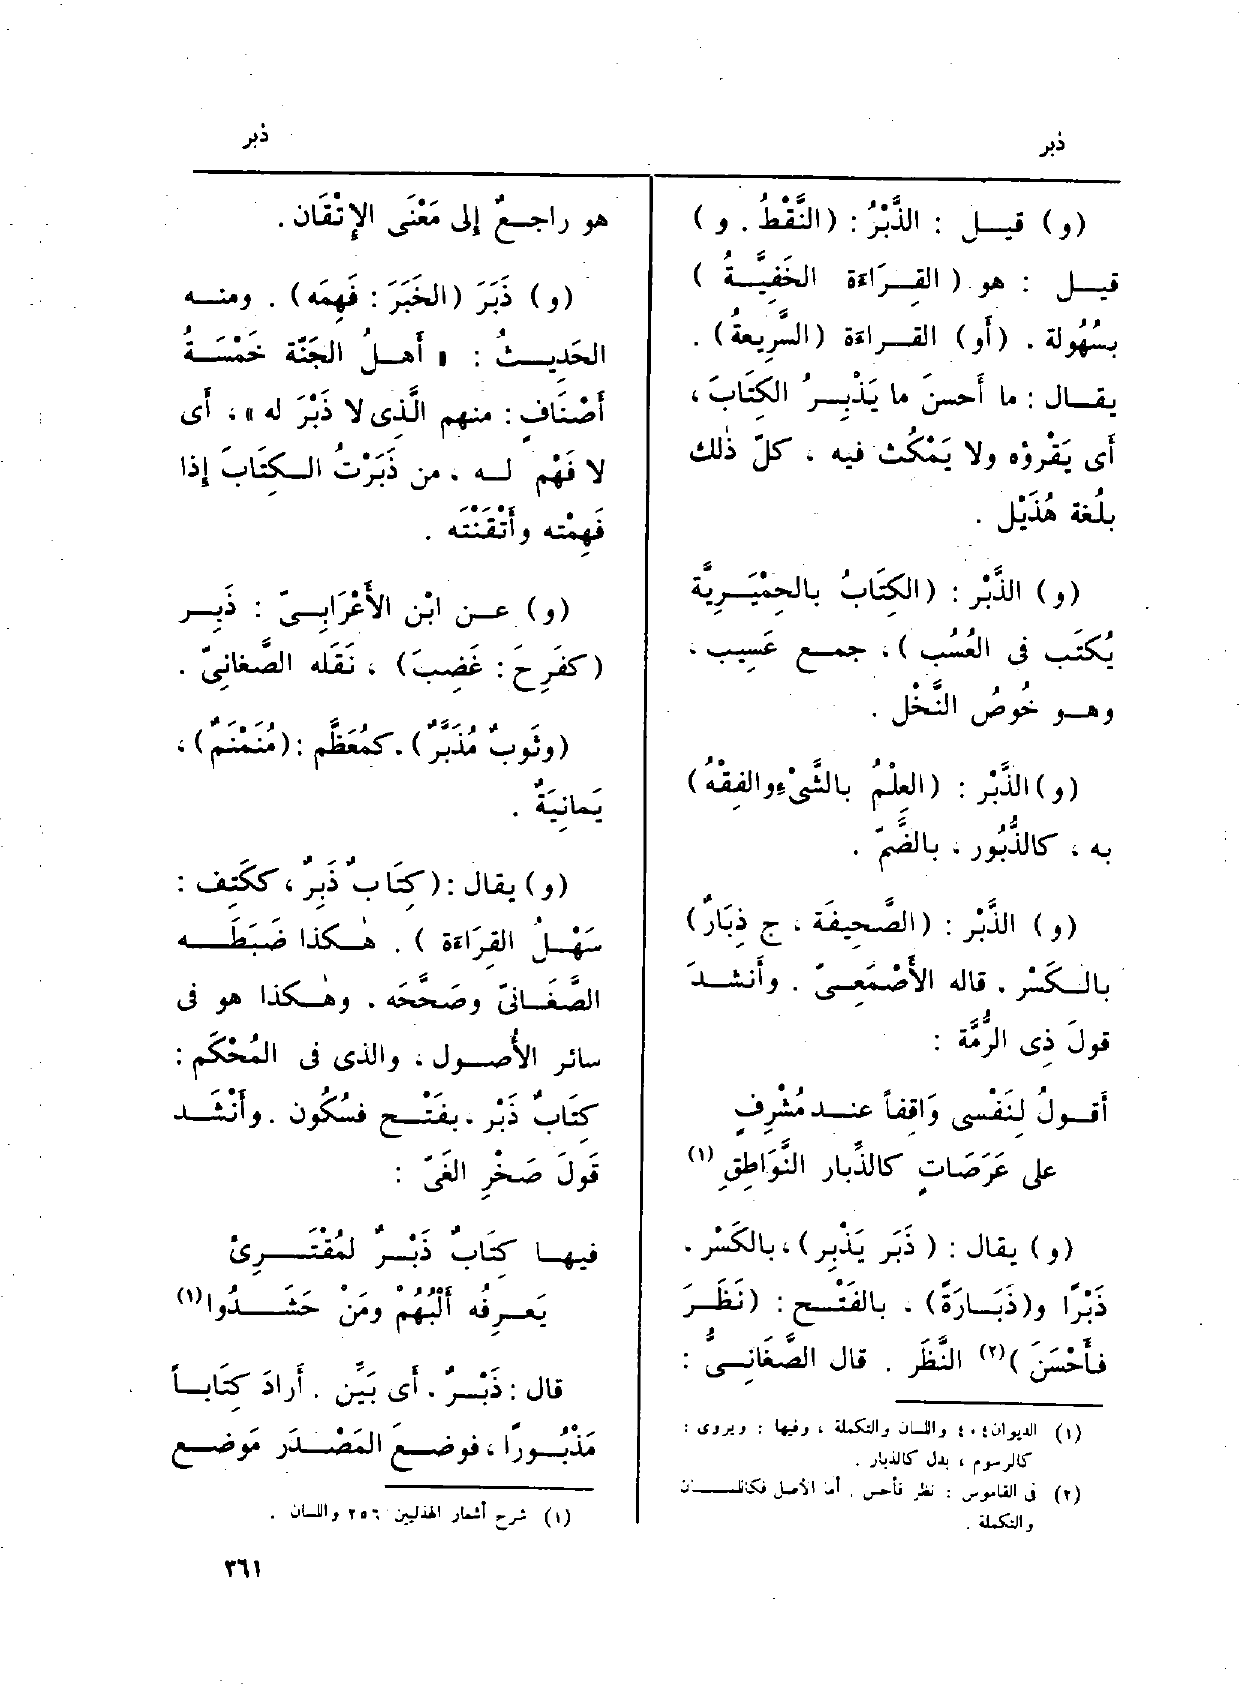 ذبر
ذبر
(و) قيل : الذَّبْرُ : (النَّقْطُ. و )
قيل : هو ( القِرَاءَة الخَفِيَّةُ )
بسُهُولة . (أو) القراءَة (السَّرِيعةُ) .
يقال : ما أَحسنَ ما يَذْبِرُ الكِتَابَ،
أَى يَقْرؤه ولا يَمْكُث فيه ، كلّ ذٰلك
بلُغة هُذَيْل .
(و) الذَّبْر : (الكِتَابُ بالحِمْيَرِيَّة
يُكتَب فى العُسُب )، جمع عَسِيب،
وهو خُوصُ النَّخْل .
(و) الذَّبْر : (العِلْمُ بالشَّىْءِ والفِقْهُ)
به ، كالذُّبُور ، بالضَّمّ .
(و) الذَّبْر : (الصَّحِيفَة ، ج ذِبَارٌ)
بالكَسْر . قاله الأَصْمَعِىّ . وأَنشدَ
قولَ ذِى الرُّمَّة :
أَقولُ لِنَفْسِى وَاقِفاً عند مُشْرِفٍ
على عَرَصَاتٍ كالذِّبار النَّوَاطِقِ (١)
(و) يقال : ( ذَبَر يَذْبِر) ، بالكَسْر .
ذَبْرًا و(ذَبَارَةً) ، بالفَتْح : (نَظَرَ
فأَحْسَنَ )(٢) النَّظَر . قال الصَّغَانِىُّ :
(١) الديوان ٤٠٤ واللسان والتكملة ، وفيها : ويروى :
كالرسوم ، بدل كالذبار .
(٢) فى القاموس : نظر فأحس . أما الأصل فكاللسان
والتكملة .
هو راجعٌ إلى مَعْنَى الإِتْقَان .
(و) ذَبَرَ (الخَبَرَ : فَهِمَه) . ومنه
الحَديثُ : « أَهلُ الجَنَّة خَمْسَةُ
أَصْنَافٍ : منهم الَّذِى لا ذَبْرَ له »، أَى
لا فَهْم له ، من ذَبَرْتُ الكِتَابَ إذا
فَهِمْته وأَتْقَنْتَه .
(و) عن ابْن الأَعْرَابِىّ : ذَبِر
(كفَرِحَ : غَضِبَ) ، نَقَله الصَّغانِىّ .
(وثَوبٌ مُذَبَّرٌ) ، كمُعَظَّم : (مُنَمْنَمٌ) ،
يَمانِيَةٌ .
(و) يقال : (كِتَابٌ ذَبِرٌ ، ككَتِف :
سَهْلُ القِرَاءَة ) . هٰكذا ضَبَطَه
الصَّغَانىّ وصَحَّحَه . وهٰكذا هو فى
سائر الأُصول ، والذى فى المُحْكَم :
كِتَابٌ ذَبْر . بفَتْح فسُكُون . وأَنْشَد
قَولَ صَخْرِ الغَىّ :
فيها كِتَابٌ ذَبْرٌ لمُقْتَرِئْ
يَعرِفُه أَلْبُهُمْ ومَنْ حَشَدُوا(١)
قال : ذَبْرٌ . أَى بَيِّن . أَرادَ كِتَاباً
مَذْبُورًا ، فوضعَ المَصْدَر مَوضع
(١) شرح أشعار الهذليين ٢٥٦ واللسان .
٣٦١